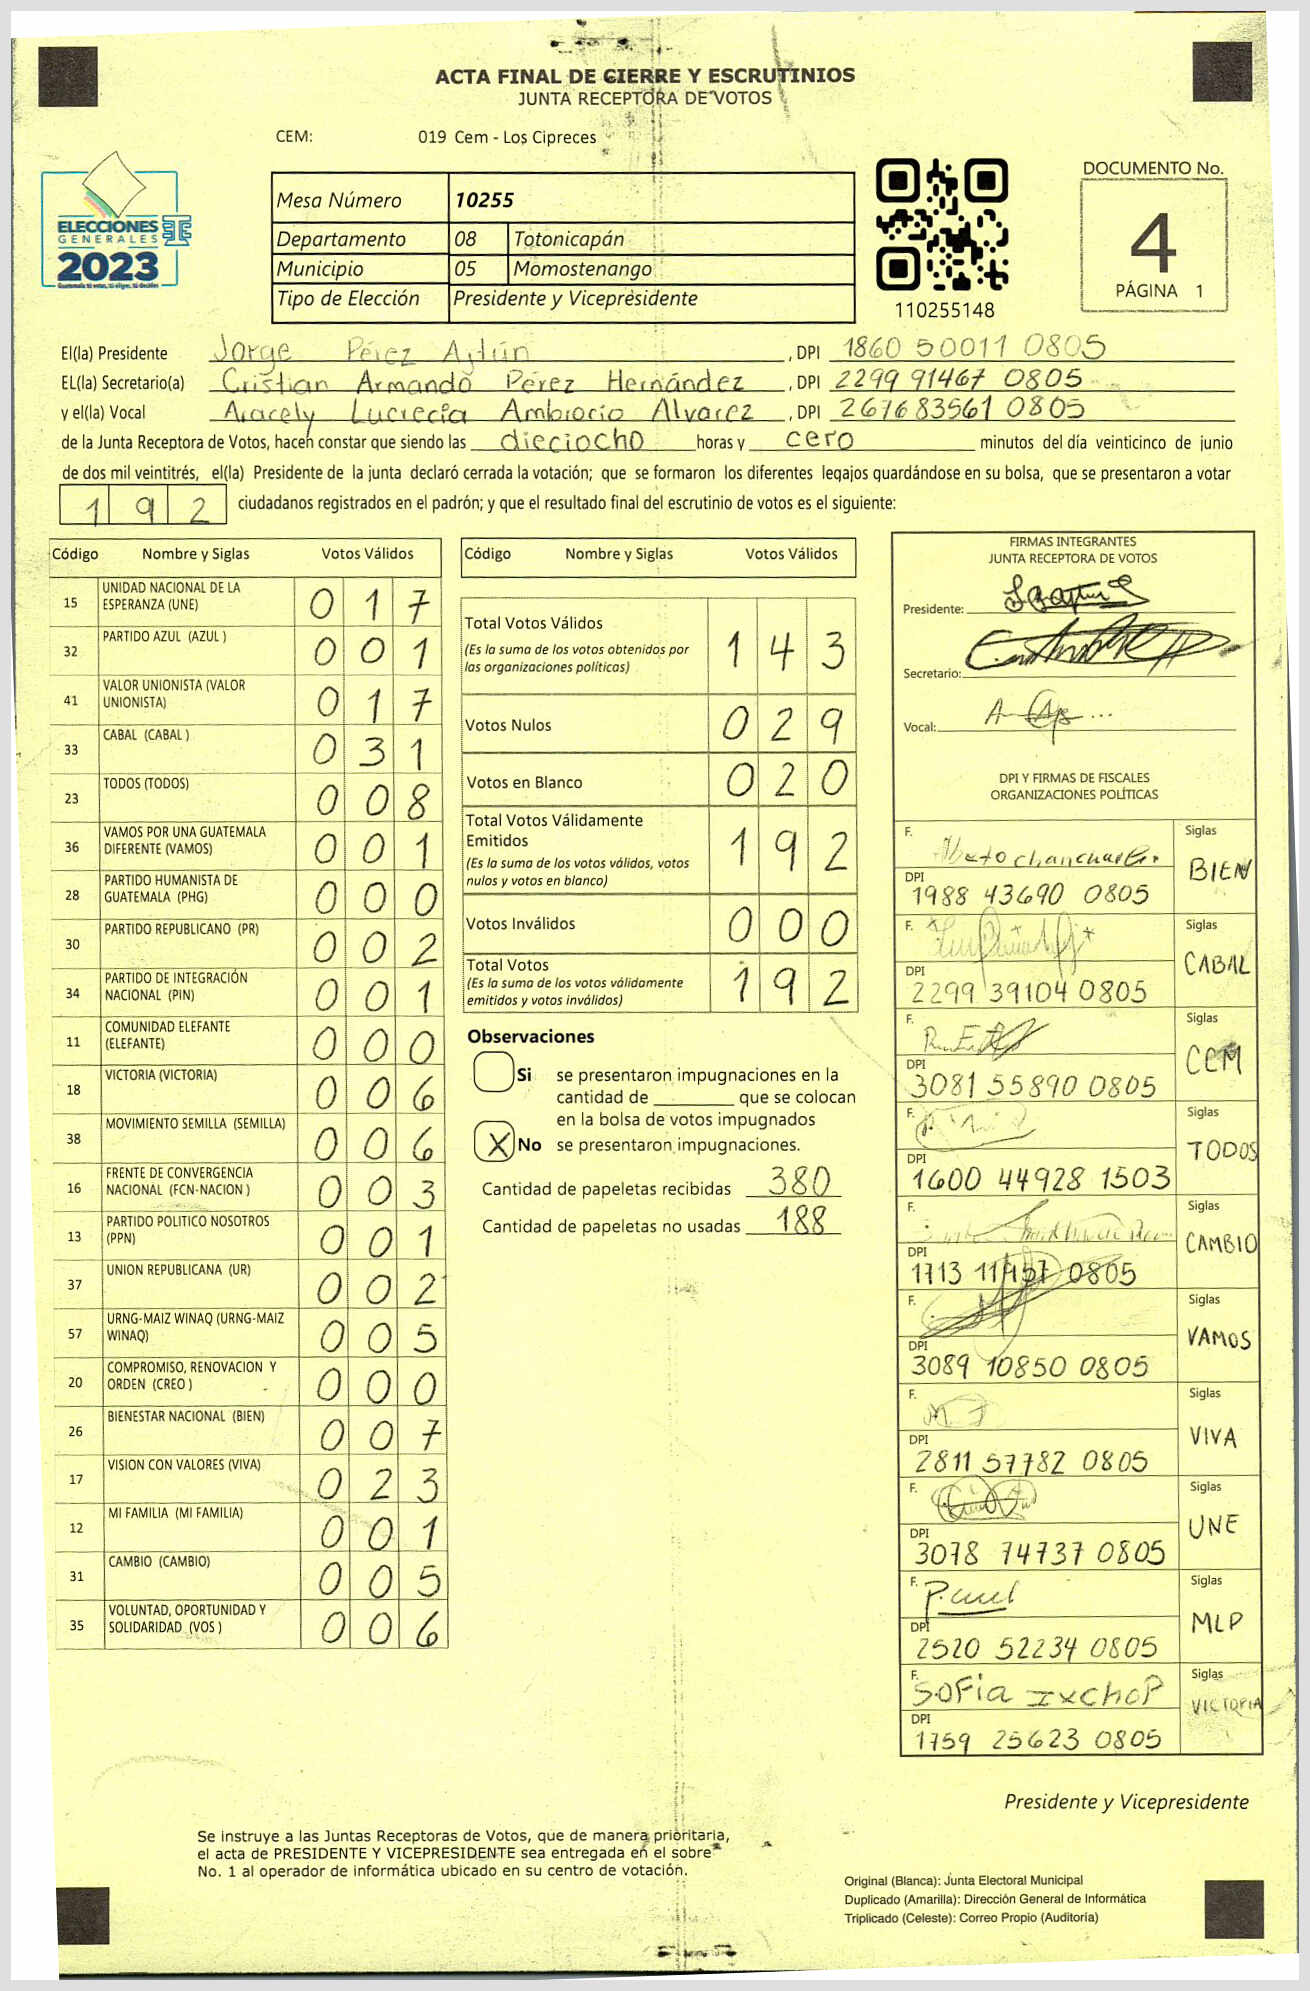 ACTA FINAL DE CIERRE Y ESCRUTINIOS
JUNTA RECEPTORA DE VOTOS
CEM: 019 Cem - Los Cipreces
ELECCIONES
GENERALES
2023
Guatemala tú votas, tú eliges, tú decides
Mesa Número 10255
Departamento 08 Totonicapán
Municipio 05 Momostenango
Tipo de Elección Presidente y Vicepresidente
110255148
DOCUMENTO No.
4
PÁGINA 1
El(la) Presidente Jorge Pérez Ajtún , DPI 1860 50011 0805
EL(la) Secretario(a) Cristian Armando Pérez Hernández , DPI 2299 91467 0805
y el(la) Vocal Aracely Lucrecia Ambrocio Alvarez , DPI 2676 83561 0805
de la Junta Receptora de Votos, hacen constar que siendo las dieciocho horas y cero minutos del día veinticinco de junio
de dos mil veintitrés, el(la) Presidente de la junta declaró cerrada la votación; que se formaron los diferentes legajos guardándose en su bolsa, que se presentaron a votar
1 9 2 ciudadanos registrados en el padrón; y que el resultado final del escrutinio de votos es el siguiente:
Código Nombre y Siglas Votos Válidos
15 UNIDAD NACIONAL DE LA ESPERANZA (UNE) 0 1 7
32 PARTIDO AZUL (AZUL ) 0 0 1
41 VALOR UNIONISTA (VALOR UNIONISTA) 0 1 7
33 CABAL (CABAL ) 0 3 1
23 TODOS (TODOS) 0 0 8
36 VAMOS POR UNA GUATEMALA DIFERENTE (VAMOS) 0 0 1
28 PARTIDO HUMANISTA DE GUATEMALA (PHG) 0 0 0
30 PARTIDO REPUBLICANO (PR) 0 0 2
34 PARTIDO DE INTEGRACIÓN NACIONAL (PIN) 0 0 1
11 COMUNIDAD ELEFANTE (ELEFANTE) 0 0 0
18 VICTORIA (VICTORIA) 0 0 6
38 MOVIMIENTO SEMILLA (SEMILLA) 0 0 6
16 FRENTE DE CONVERGENCIA NACIONAL (FCN-NACION ) 0 0 3
13 PARTIDO POLITICO NOSOTROS (PPN) 0 0 1
37 UNION REPUBLICANA (UR) 0 0 2
57 URNG-MAIZ WINAQ (URNG-MAIZ WINAQ) 0 0 5
20 COMPROMISO, RENOVACION Y ORDEN (CREO ) 0 0 0
26 BIENESTAR NACIONAL (BIEN) 0 0 7
17 VISION CON VALORES (VIVA) 0 2 3
12 MI FAMILIA (MI FAMILIA) 0 0 1
31 CAMBIO (CAMBIO) 0 0 5
35 VOLUNTAD, OPORTUNIDAD Y SOLIDARIDAD (VOS ) 0 0 6
Código Nombre y Siglas Votos Válidos
Total Votos Válidos
(Es la suma de los votos obtenidos por las organizaciones políticas) 1 4 3
Votos Nulos 0 2 9
Votos en Blanco 0 2 0
Total Votos Válidamente Emitidos
(Es la suma de los votos válidos, votos nulos y votos en blanco) 1 9 2
Votos Inválidos 0 0 0
Total Votos
(Es la suma de los votos válidamente emitidos y votos inválidos) 1 9 2
Observaciones
Si se presentaron impugnaciones en la
cantidad de ________ que se colocan
en la bolsa de votos impugnados
X No se presentaron impugnaciones.
Cantidad de papeletas recibidas 380
Cantidad de papeletas no usadas 188
FIRMAS INTEGRANTES
JUNTA RECEPTORA DE VOTOS
Presidente:
Secretario:
Vocal:
DPI Y FIRMAS DE FISCALES
ORGANIZACIONES POLÍTICAS
F. Siglas BIEN
DPI 1988 43690 0805
F. Siglas CABAL
DPI 2299 39104 0805
F. Siglas CEM
DPI 3081 55890 0805
F. Siglas TODOS
DPI 1600 44928 1503
F. Siglas CAMBIO
DPI 1713 11957 0805
F. Siglas VAMOS
DPI 3089 10850 0805
F. Siglas VIVA
DPI 2811 57782 0805
F. Siglas UNE
DPI 3078 74737 0805
F. Siglas MLP
DPI 2520 52234 0805
F. SOFia IxchoP Siglas VICTORIA
DPI 1759 25623 0805
Presidente y Vicepresidente
Se instruye a las Juntas Receptoras de Votos, que de manera prioritaria,
el acta de PRESIDENTE Y VICEPRESIDENTE sea entregada en el sobre
No. 1 al operador de informática ubicado en su centro de votación.
Original (Blanca): Junta Electoral Municipal
Duplicado (Amarilla): Dirección General de Informática
Triplicado (Celeste): Correo Propio (Auditoría)